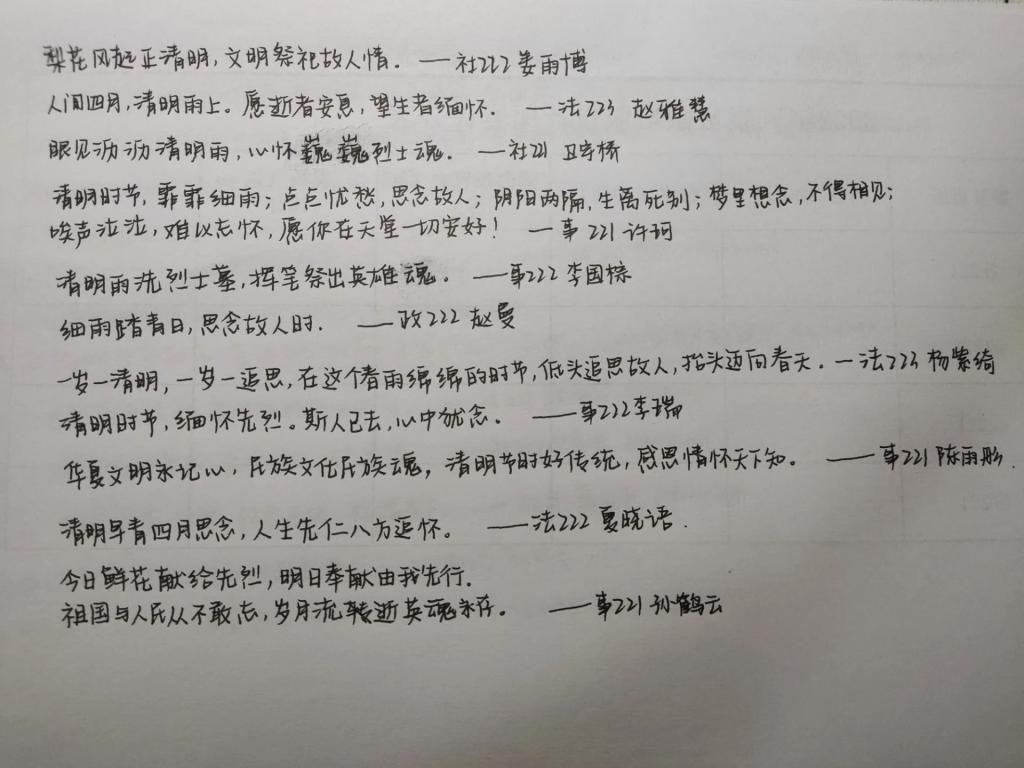 梨花风起正清明，文明祭祀故人情. —社222 姜雨博
人间四月，清明雨上。愿逝者安息，望生者缅怀. —法223 赵雅慧
眼见沥沥清明雨，心怀巍巍烈士魂. —社221 卫宇桥
清明时节，霏霏细雨；点点忧愁，思念故人；阴阳两隔，生离死别；梦里想念，不得相见；
唉声泣泣，难以忘怀，愿你在天堂一切安好！ —事221 许珂
清明雨洗烈士墓，挥笔祭出英雄魂。 —事222 李国棕
细雨踏青日，思念故人时. —政222 赵曼
一岁一清明，一岁一追思，在这个春雨绵绵的时节，低头追思故人，抬头迈向春天. —法223 杨紫绮
清明时节，缅怀先烈。斯人已去，心中犹念。 —事222李瑞
华夏文明永记心，民族文化民族魂，清明节时好传统，感恩情怀天下知。 —事221 陈雨彤.
清明早青四月思念，人生先仁八方追怀。 —法222 夏晓语.
今日鲜花献给先烈，明日奉献由我先行.
祖国与人民从不敢忘，岁月流转逝英魂永存。 —事221 孙鹤云